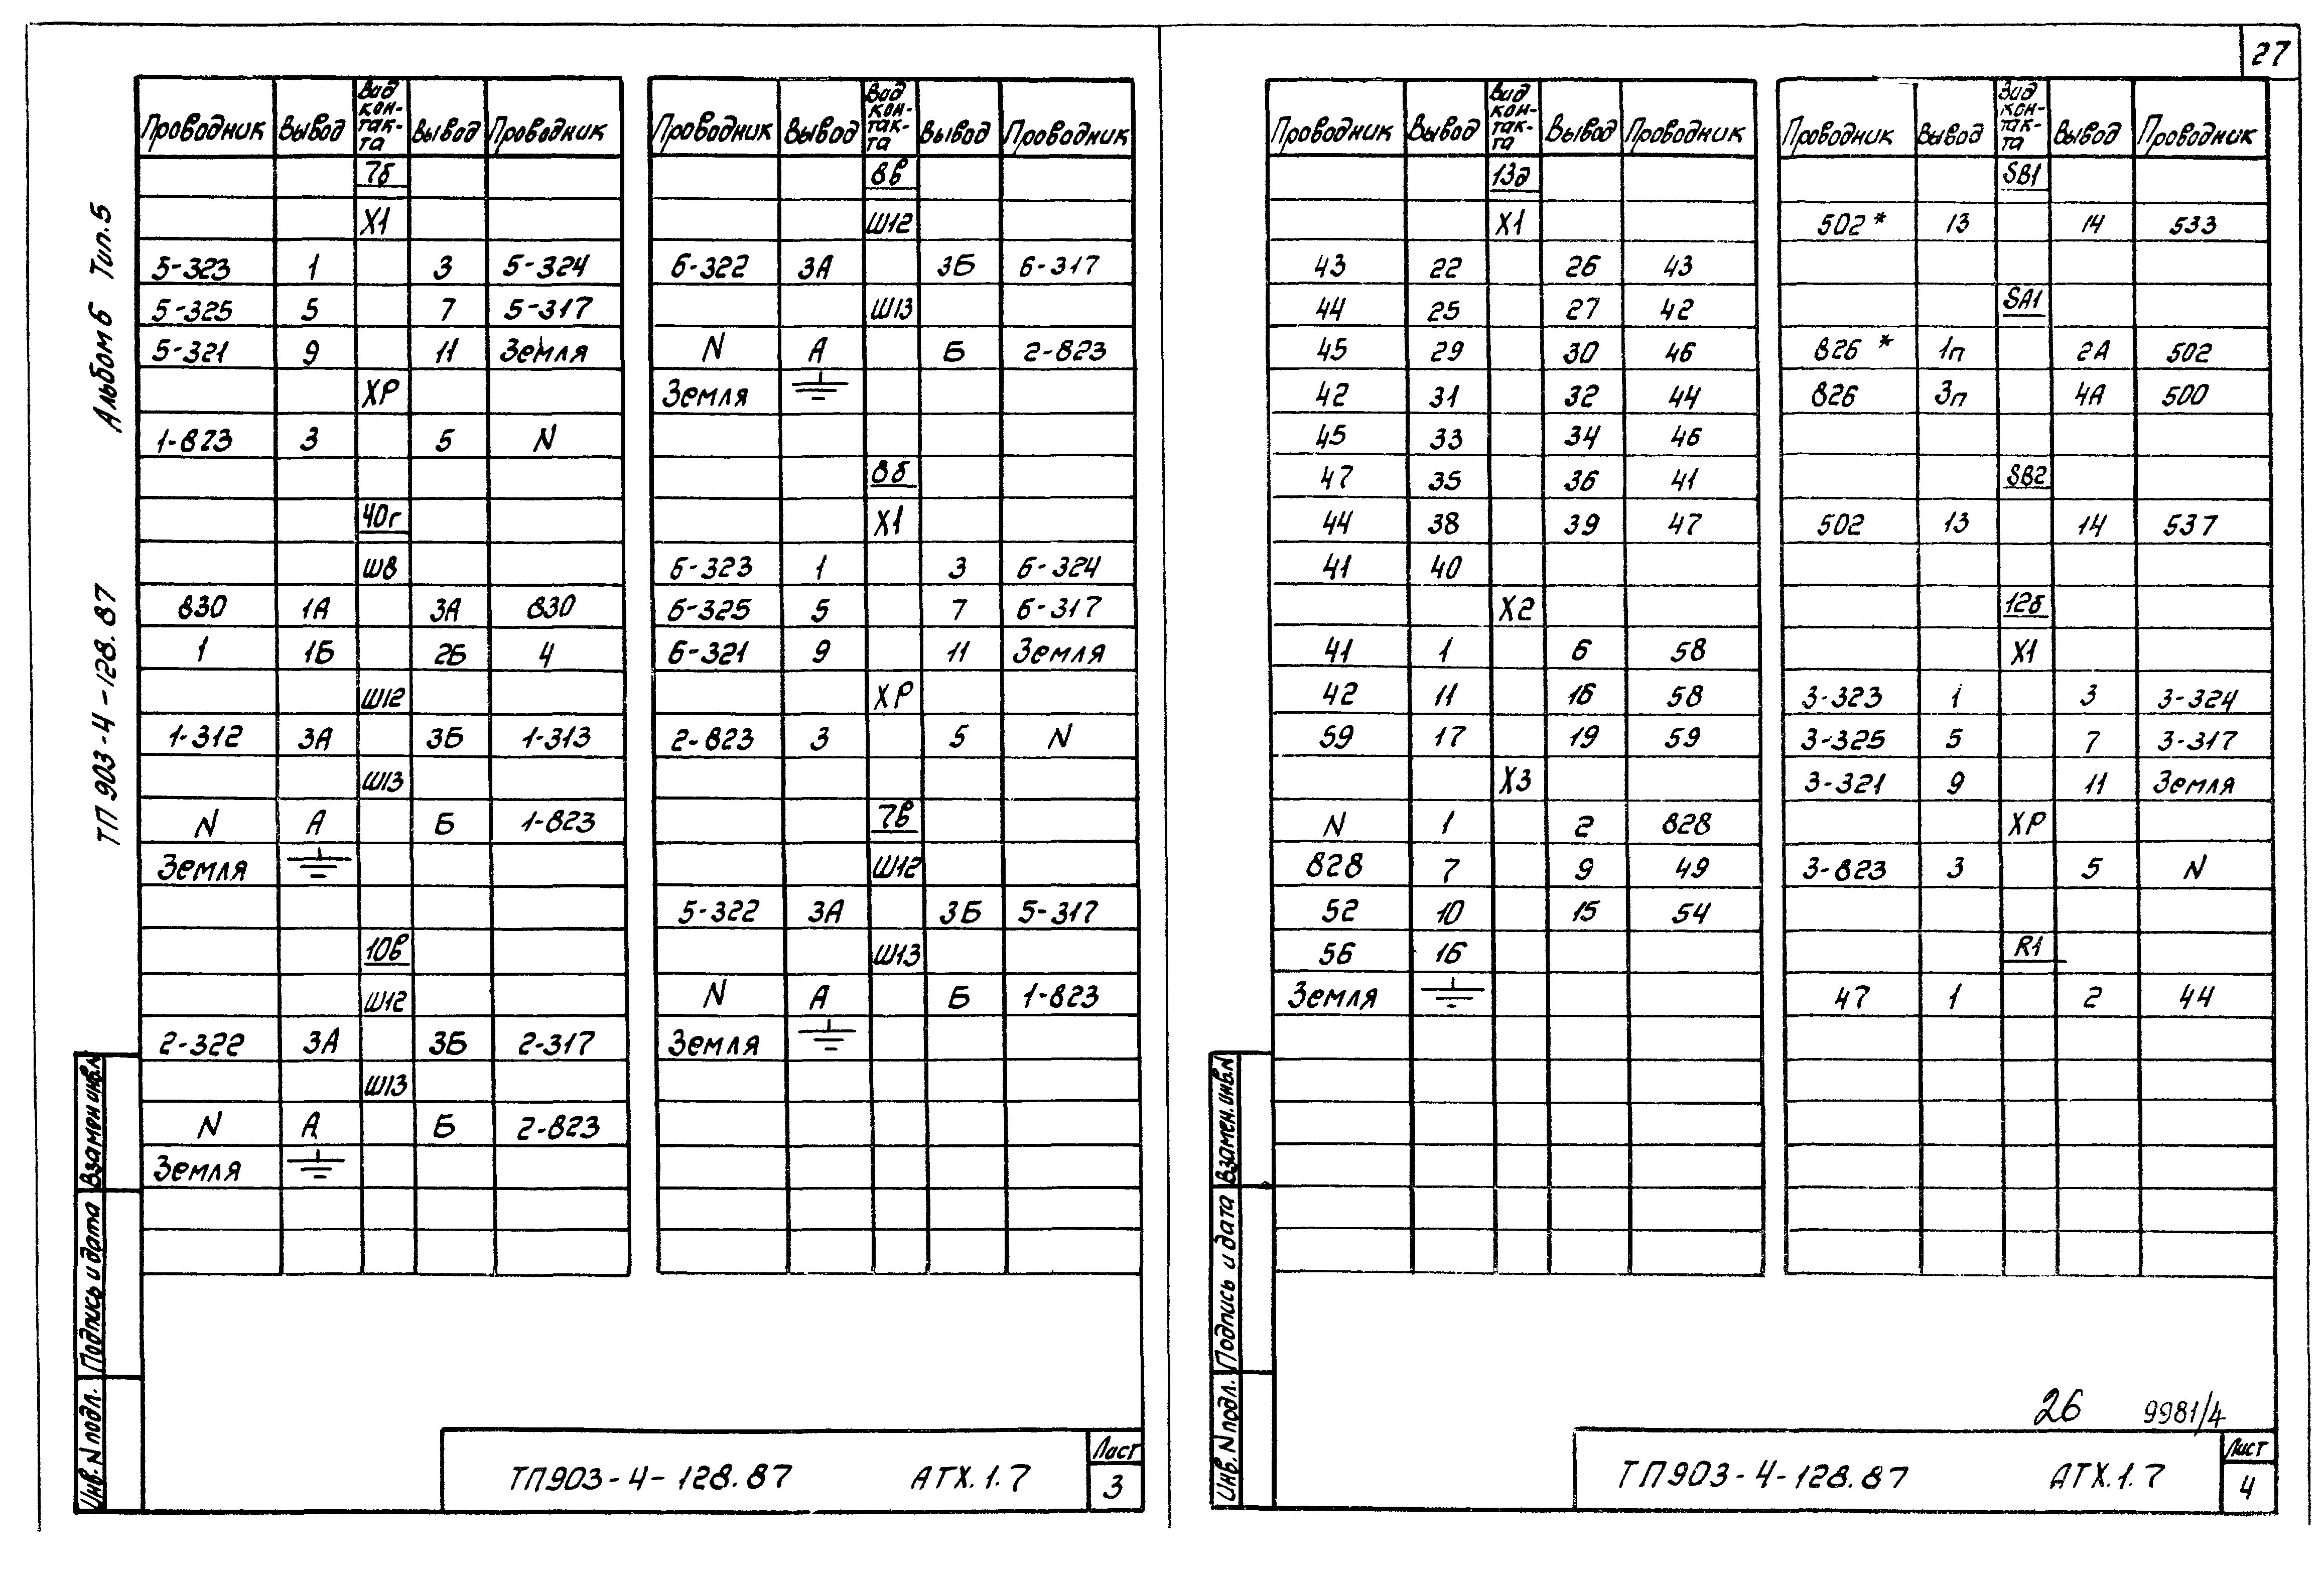 27
Альбом 6 Тип.5
ТП 903-4-128.87
Проводник Вывод Вид кон-так-та Вывод Проводник
7б
Х1
5-323 1 3 5-324
5-325 5 7 5-317
5-321 9 11 Земля
ХР
1-823 3 5 N
40г
Ш8
830 1А 3А 830
1 1Б 2Б 4
Ш12
1-312 3А 3Б 1-313
Ш13
N А Б 1-823
Земля
10в
Ш12
2-322 3А 3Б 2-317
Ш13
N А Б 2-823
Земля
Проводник Вывод Вид кон-так-та Вывод Проводник
8в
Ш12
6-322 3А 3Б 6-317
Ш13
N А Б 2-823
Земля
8б
Х1
6-323 1 3 6-324
6-325 5 7 6-317
6-321 9 11 Земля
ХР
2-823 3 5 N
7в
Ш12
5-322 3А 3Б 5-317
Ш13
N А Б 1-823
Земля
Взамен инв.N
Подпись и дата
Инв. N подл.
ТП903-4-128.87 АТХ.1.7
Лист
3
Проводник Вывод Вид кон-так-та Вывод Проводник
13д
Х1
43 22 26 43
44 25 27 42
45 29 30 46
42 31 32 44
45 33 34 46
47 35 36 41
44 38 39 47
41 40
Х2
41 1 6 58
42 11 16 58
59 17 19 59
Х3
N 1 2 828
828 7 9 49
52 10 15 54
56 16
Земля
Проводник Вывод Вид кон-так-та Вывод Проводник
SB1
502* 13 14 533
SA1
826* 1п 2А 502
826 3п 4А 500
SB2
502 13 14 537
12б
Х1
3-323 1 3 3-324
3-325 5 7 3-317
3-321 9 11 Земля
ХР
3-823 3 5 N
R1
47 1 2 44
Взамен.инв.N
Подпись и дата
Инв. N подл.
26 9981/4
ТП903-4-128.87 АТХ.1.7
Лист
4